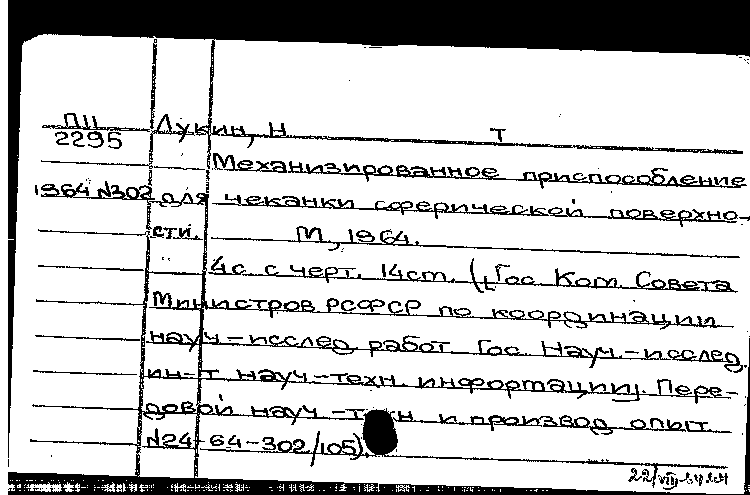 ПII Лукин, Н Т
2295
Механизированное приспособление
1964 N302 для чеканки сферической поверхно-
сти. М, 1964.
4с. с черт. 14ст. (Гос Ком Совета
Министров РСФСР по координации
науч-исслед работ Гос. Науч.-исслед.
ин-т науч-техн. информации. Пере-
довой науч-техн и производ опыт
N24-64-302/105).
22/VIII